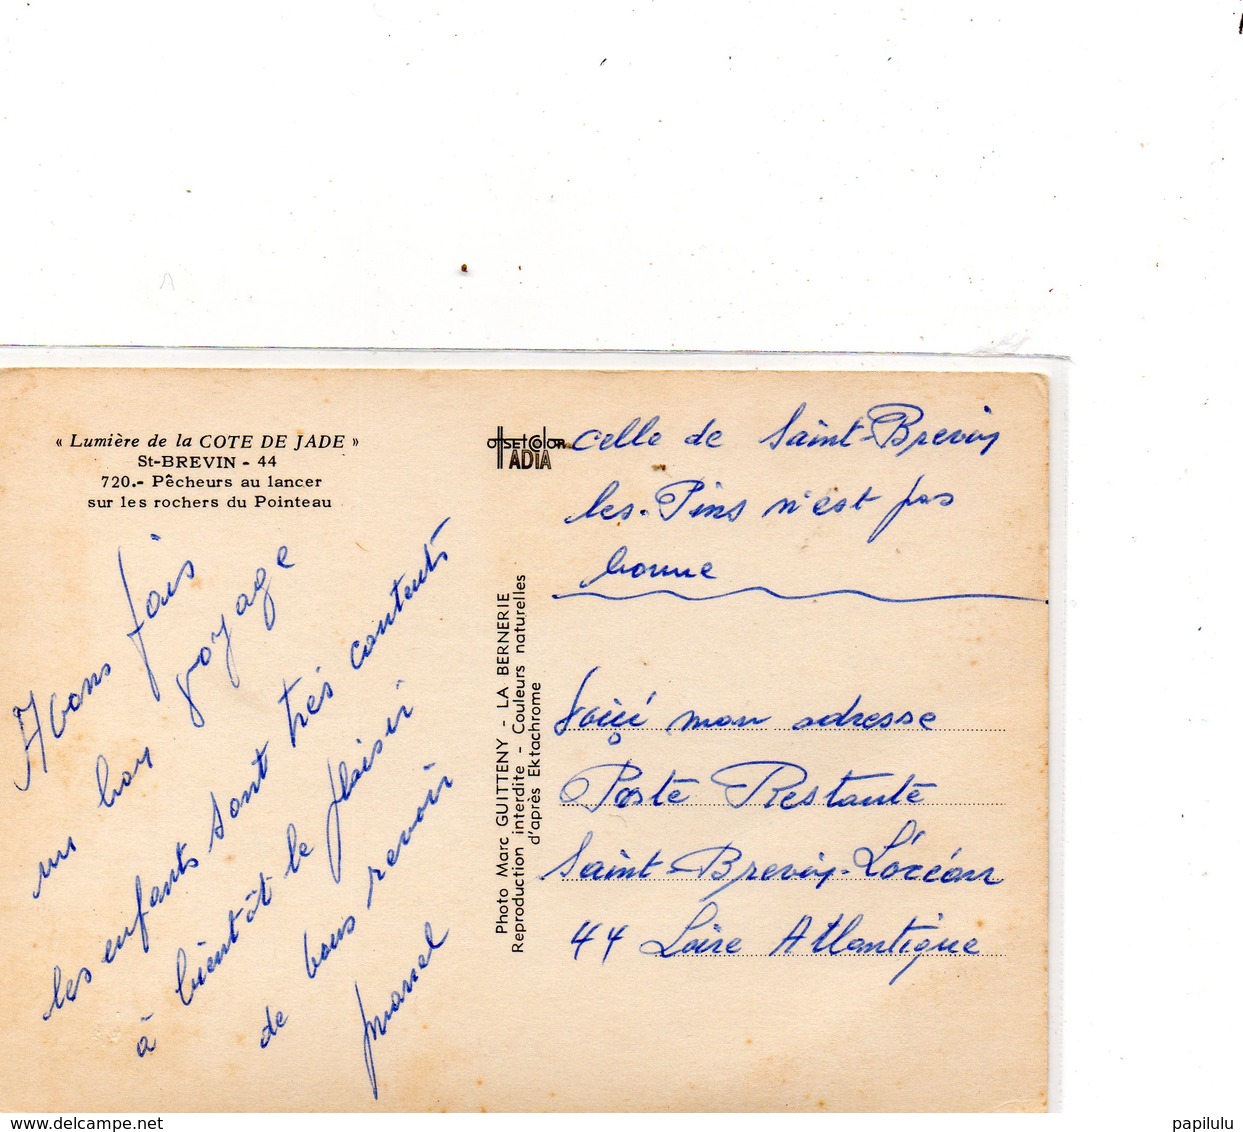 « Lumière de la COTE DE JADE »
St-BREVIN - 44
720.- Pêcheurs au lancer
sur les rochers du Pointeau
Avons fais
un bon voyage
les enfants sont très contents
à bientôt le plaisir
de vous revoir
OffSET COLOR
ADIA
Photo Marc GUITTENY - LA BERNERIE
Reproduction interdite - Couleurs naturelles
d'après Ektachrome
celle de Saint-Brevin
les-Pins n'est pas
bonne
Voiçi mon adresse
Poste Restante
Saint-Brevin-L'océan
44 Loire Atlantique
www.delcampe.net
papilulu